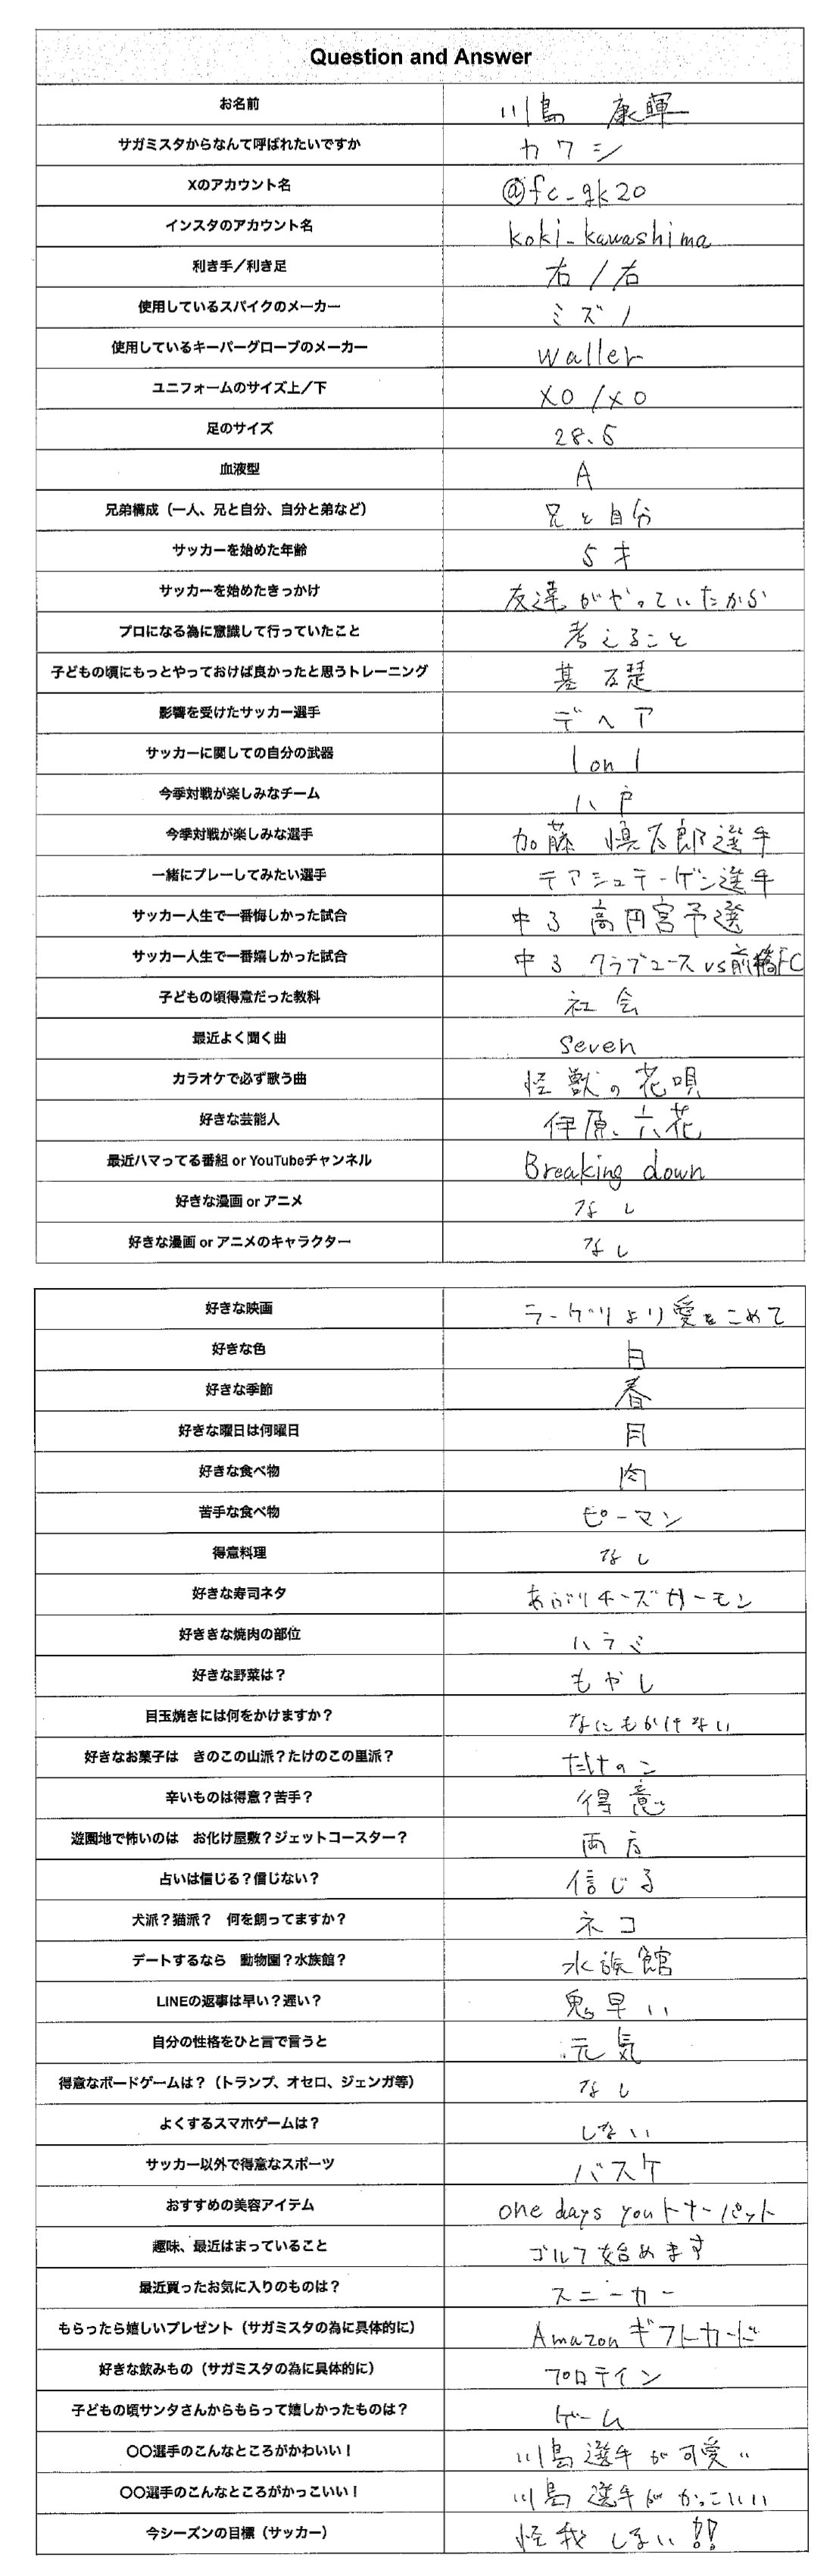 Question and Answer
お名前 川島 康暉
サガミスタからなんて呼ばれたいですか カワシ
Xのアカウント名 @fc_gk20
インスタのアカウント名 koki_kawashima
利き手／利き足 右／右
使用しているスパイクのメーカー ミズノ
使用しているキーパーグローブのメーカー waller
ユニフォームのサイズ上／下 XO／XO
足のサイズ 28.5
血液型 A
兄弟構成（一人、兄と自分、自分と弟など） 兄と自分
サッカーを始めた年齢 5才
サッカーを始めたきっかけ 友達がやっていたから
プロになる為に意識して行っていたこと 考えること
子どもの頃にもっとやっておけば良かったと思うトレーニング 基礎
影響を受けたサッカー選手 デヘア
サッカーに関しての自分の武器 1 on 1
今季対戦が楽しみなチーム 八戸
今季対戦が楽しみな選手 加藤 慎太郎選手
一緒にプレーしてみたい選手 テアシュテーゲン選手
サッカー人生で一番悔しかった試合 中3 高円宮予選
サッカー人生で一番嬉しかった試合 中3 クラブユース vs 前橋FC
子どもの頃得意だった教科 社会
最近よく聞く曲 Seven
カラオケで必ず歌う曲 怪獣の花唄
好きな芸能人 伊原六花
最近ハマってる番組 or YouTubeチャンネル Breaking down
好きな漫画 or アニメ なし
好きな漫画 or アニメのキャラクター なし
好きな映画 ラーゲリより愛をこめて
好きな色 白
好きな季節 春
好きな曜日は何曜日 月
好きな食べ物 肉
苦手な食べ物 ピーマン
得意料理 なし
好きな寿司ネタ あぶりチーズサーモン
好ききな焼肉の部位 ハラミ
好きな野菜は？ もやし
目玉焼きには何をかけますか？ なにもかけない
好きなお菓子は きのこの山派？たけのこの里派？ たけのこ
辛いものは得意？苦手？ 得意
遊園地で怖いのは お化け屋敷？ジェットコースター？ 両方
占いは信じる？信じない？ 信じる
犬派？猫派？ 何を飼ってますか？ ネコ
デートするなら 動物園？水族館？ 水族館
LINEの返事は早い？遅い？ 鬼早い
自分の性格をひと言で言うと 元気
得意なボードゲームは？（トランプ、オセロ、ジェンガ等） なし
よくするスマホゲームは？ しない
サッカー以外で得意なスポーツ バスケ
おすすめの美容アイテム one days you トナーパット
趣味、最近はまっていること ゴルフ始めます
最近買ったお気に入りのものは？ スニーカー
もらったら嬉しいプレゼント（サガミスタの為に具体的に） Amazonギフトカード
好きな飲みもの（サガミスタの為に具体的に） プロテイン
子どもの頃サンタさんからもらって嬉しかったものは？ ゲーム
〇〇選手のこんなところがかわいい！ 川島選手が可愛い
〇〇選手のこんなところがかっこいい！ 川島選手がかっこいい
今シーズンの目標（サッカー） 怪我しない!!